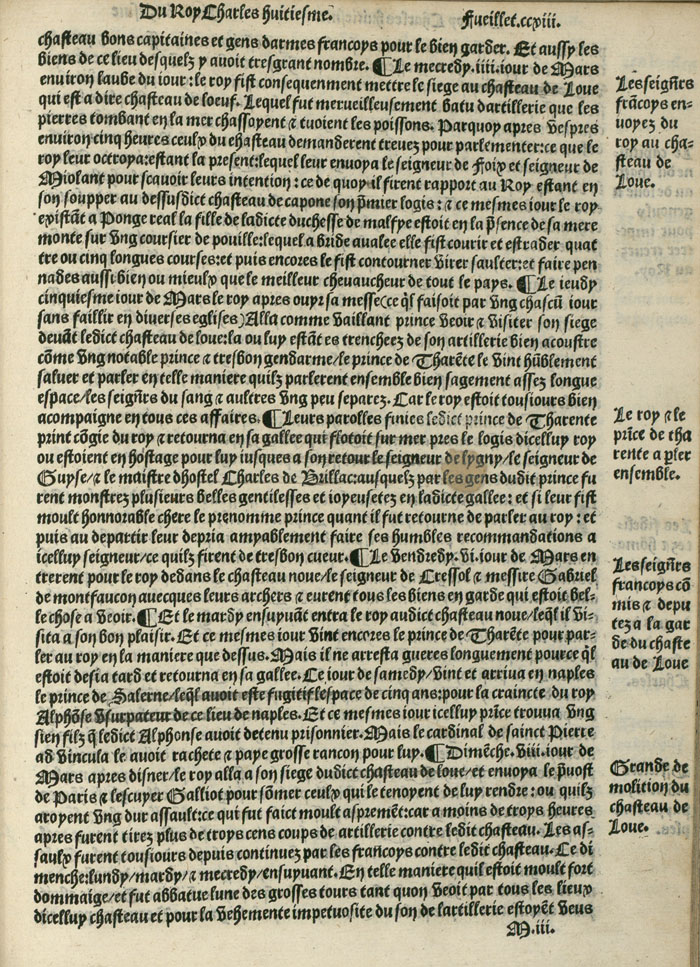 Du Roy Charles huitiesme.
Fueillet.ccxiii.
chasteau bons capitaines et gens darmes francoys pour le bien garder. Et aussy les
biens de ce lieu desquelz y auoit tresgrant nombre. ¶Le mecredy.iiii.iour de Mars
enuiron laube du iour: le roy fist consequenment mettre le siege au chasteau de Loue
qui est a dire chasteau de loeuf. Lequel fut merueilleusement batu dartillerie que les
pierres tombant en la mer chassoyent ⁊ tuoient les poissons. Parquoy apres vespres
enuiron cinq heures ceulx du chasteau demanderent treuez pour parlementer:ce que le
roy leur octroya:estant la present:lequel leur enuoya le seigneur de Foix et seigneur de
Miolant pour scauoir leurs intention:ce de quoy il firent rapport au Roy estant en
son soupper au dessusdict chasteau de capone son p̃mier logis:⁊ ce mesmes iour le roy
existãt a Ponge real la fille de ladicte duchesse de malfye estoit en la p̃sence de sa mere
monte sur vng coursier de pouille:lequel a bride auallee elle fist courir et estrader quat
tre ou cinq longues courses:et puis encores le fist contourner virer saulter:et faire pen
nades aussi bien ou mieulx que le meilleur cheuaucheur de tout le pays. ¶Le ieudy
cinquiesme iour de Mars le roy apres ouyr sa messe(ce q̃l faisoit par vng chascũ iour
sans faillir en diuerses eglises)Alla comme vaillant prince veoir ⁊ visiter son siege
deuãt ledict chasteau de loue:la ou luy estãt es trencheez de son artillerie bien acoustre
cõme vng notable prince ⁊ tresbon gendarme/le prince de Tharẽte le vint hũblement
saluer et parler en telle maniere quilz parlerent ensemble bien sagement assez longue
espace/les seigñrs du sang ⁊ aultres vng peu separez. Car le roy estoit tousiours bien
acompaigne en tous ces affaires. ¶Leurs parolles finies ledict prince de Tharente
print cõgie du roy ⁊ retourna en sa gallee qui flotoit sur mer pres le logis dicelluy roy
ou estoient en hostage pour luy iusques a son retour le seigneur de lygny/le seigneur de
Guyse/⁊ le maistre dhostel Charles de Brillac:ausquelz par les gens dudit prince fu
rent monstrez plusieurs belles gentilesses et ioyeusetez en ladicte gallee: et si leur fist
moult honnorable chere le prenomme prince quant il fut retourne de parler au roy: et
puis au departir leur depria amyablement faire ses humbles recommandations a
icelluy seigneur/ce quilz firent de tresbon cueur. ¶Le vendredy.vi.iour de Mars en
trerent pour le roy dedans le chasteau noue/le seigneur de Cressol ⁊ messire Gabriel
de montfaucon auecques leurs archers ⁊ eurent tous les biens en garde qui estoit bel-
le chose a veoir. ¶Et le mardy ensuyuãt entra le roy audict chasteau noue/leq̃l il vi-
sita a son bon plaisir. Et ce mesmes iour vint encores le prince de Tharẽte pour par-
ler au roy en la maniere que dessus. Mais il ne arresta gueres longuement pource q̃l
estoit desia tard et retourna en sa gallee. Ce iour de samedy/vint et arriua en naples
le prince de Salerne/leq̃l auoit este fugitif lespace de cinq ans:pour la craincte du roy
Alphõse vsurpateur de ce lieu de naples. Et ce mesmes iour icelluy prĩce trouua vng
sien filz q̃ ledict Alphonse auoit detenu prisonnier. Mais le cardinal de sainct Pierre
ad vincula le auoit rachete ⁊ paye grosse rancon pour luy. ¶Dimẽche.viii.iour de
Mars apres disner/le roy alla a son siege dudict chasteau de loue/et enuoya le p̃uost
de Paris ⁊ lescuyer Galliot pour sõmer ceulx qui le tenoyent de luy rendre: ou quilz
aroyent vng dur assault:ce qui fut faict moult aspremẽt:car a moins de troys heures
apres furent tirez plus de troys cens coups de artillerie contre ledit chasteau. Les as-
saulx furent tousiours depuis continuez par les frãcoys contre ledit chasteau. Ce di
menche:lundy/mardy/⁊ mecredy/ensuyuant. En telle maniere quil estoit moult fort
dommaige/et fut abbatue lune des grosses tours tant quon veoit par tous les lieux
dicelluy chasteau et pour la vehemente impetuosite du son de lartillerie estoyẽt veus
M.iii.
Les seigñrs
frãcoys en-
uoyez du
roy au cha-
steau de
Loue.
Le roy ⁊ le
prĩce de tha
rente a p̱ler
ensemble.
Les seigñrs
francoys cõ
mis ⁊ depu
tez a la gar
de du chaste
au de Loue
Grande de
molition du
chasteau de
Loue.